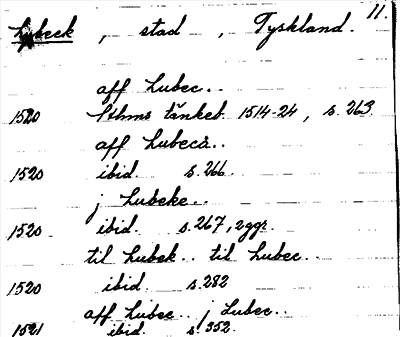 Lybeck, stad, Tyskland. 11.
aff Lubec..
1520 Sthms tänkeb. 1514-24, s. 263.
aff Lubeca..
1520 ibid. s. 266.
j Lubeke..
1520 ibid. s. 267, 2ggr.
til Lubek.. til Lubec..
1520 ibid s. 282
aff Lubec.. j Lubec..
1521 ibid. s. 352.